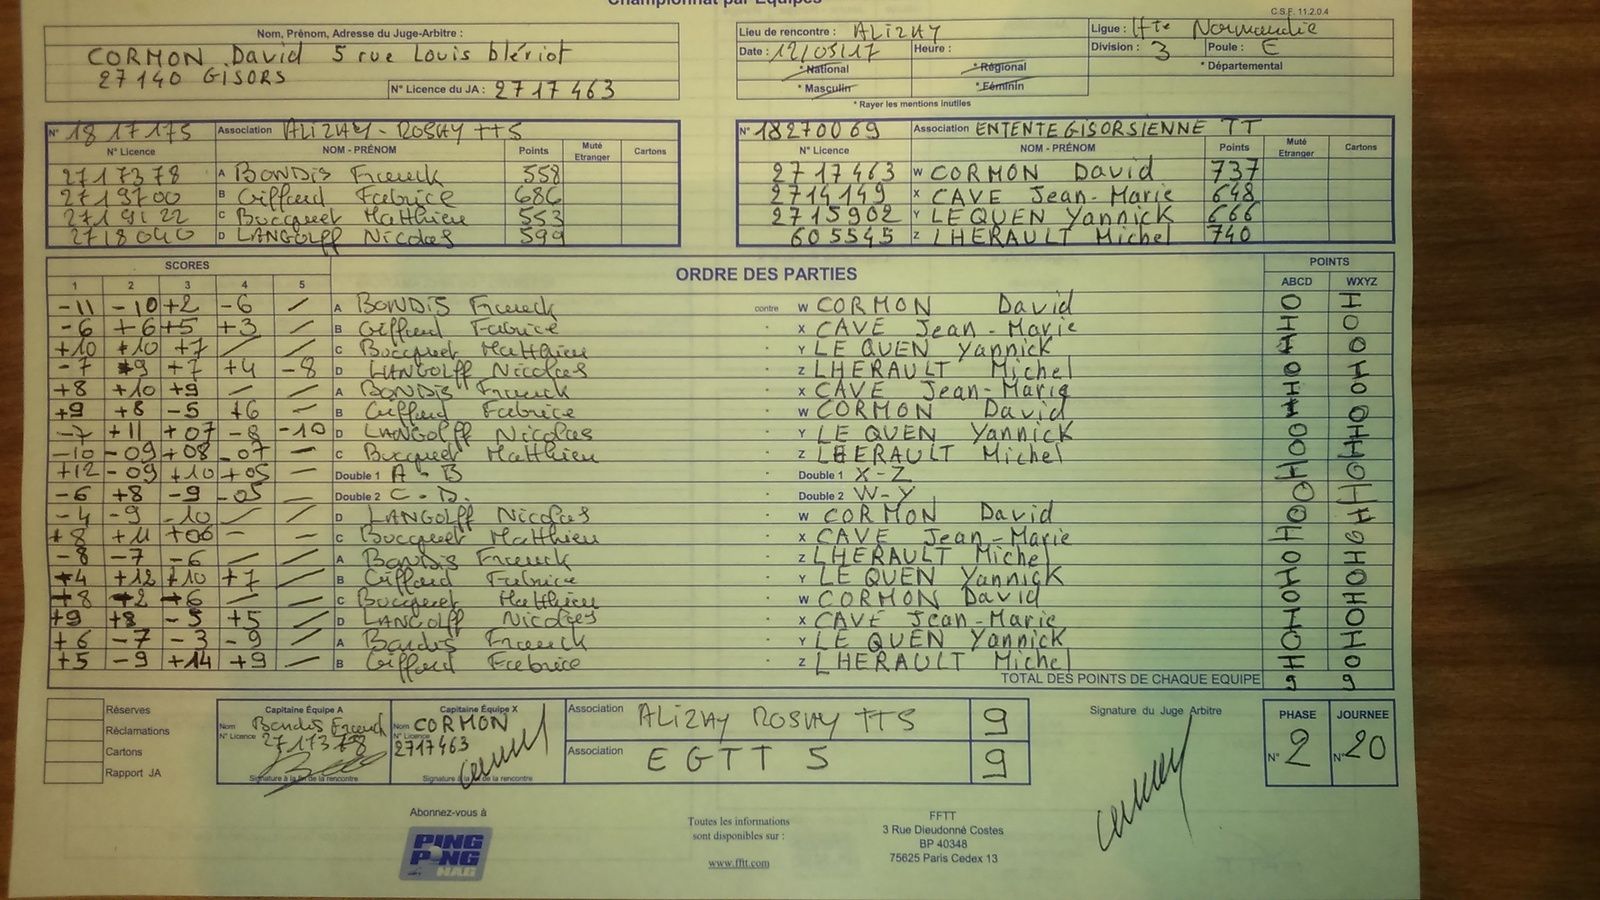 Championnat par Equipes
C.S.F. 11.2.0.4
Nom, Prénom, Adresse du Juge-Arbitre :
CORMON David 5 rue Louis blériot
27140 GISORS
N° Licence du JA : 2717463
Lieu de rencontre : ALIZAY
Ligue : Hte Normandie
Date : 12/03/17 Heure : Division : 3 Poule : E
* National * Régional * Départemental
* Masculin * Féminin
* Rayer les mentions inutiles
N° 1817175 Association ALIZAY - ROSNAY TTS
N° Licence NOM - PRÉNOM Points Muté Etranger Cartons
2717378 A BONDIS Franck 558
2719700 B Giffard Fabrice 686
2719122 C Bucquet Matthieu 553
2718040 D LANGOLFF Nicolas 599
N° 18270069 Association ENTENTE GISORSIENNE TT
N° Licence NOM - PRÉNOM Points Muté Etranger Cartons
2717463 W CORMON David 737
2714149 X CAVE Jean-Marie 648
2715902 Y LE QUEN Yannick 666
605545 Z LHERAULT Michel 740
SCORES ORDRE DES PARTIES POINTS
1 2 3 4 5 ABCD WXYZ
-11 -10 +2 -6 / A BONDIS Franck contre W CORMON David 0 1
-6 +6 +5 +3 / B Giffard Fabrice X CAVE Jean-Marie 1 0
+10 +10 +7 / / C Bucquet Matthieu Y LE QUEN Yannick 1 0
-7 +9 +7 +4 -8 D LANGOLFF Nicolas Z LHERAULT Michel 0 1
+8 +10 +9 - / A BONDIS Franck X CAVE Jean-Marie 1 0
+9 +8 -5 +6 - B Giffard Fabrice W CORMON David 1 0
-7 +11 +07 -8 -10 D LANGOLFF Nicolas Y LE QUEN Yannick 0 1
-10 -09 +08 -07 - C Bucquet Matthieu Z LHERAULT Michel 0 1
+12 -09 +10 +05 - Double 1 A - B Double 1 X - Z 1 0
-6 +8 -9 -05 - Double 2 C - D. Double 2 W - Y 0 1
-4 -9 -10 / / D LANGOLFF Nicolas W CORMON David 0 1
+8 +11 +06 - - C Bucquet Matthieu X CAVE Jean-Marie 1 0
-8 -7 -6 - / A Bondis Franck Z LHERAULT Michel 0 1
+4 +12 +10 +7 / B Giffard Fabrice Y LE QUEN Yannick 1 0
-8 -2 -6 / / C Bucquet Matthieu W CORMON David 0 1
+9 +8 -5 +5 / D LANGOLFF Nicolas X CAVE Jean-Marie 1 0
+6 -7 -3 -9 / A Bondis Franck Y LE QUEN Yannick 0 1
+5 -9 +14 +9 / B Giffard Fabrice Z LHERAULT Michel 1 0
TOTAL DES POINTS DE CHAQUE EQUIPE 9 9
Réserves
Réclamations
Cartons
Rapport JA
Capitaine Équipe A
Nom Bondis Franck
N° Licence 2717378
Signature à la fin de la rencontre
Capitaine Équipe X
Nom CORMON
N° Licence 2717463
Signature à la fin de la rencontre
Association ALIZAY ROSNAY TTS 9
Association EGTT 5 9
Signature du Juge Arbitre
PHASE JOURNEE
N° 2 N° 20
Abonnez-vous à
PING PONG MAG
Toutes les informations
sont disponibles sur :
www.fftt.com
FFTT
3 Rue Dieudonné Costes
BP 40348
75625 Paris Cedex 13